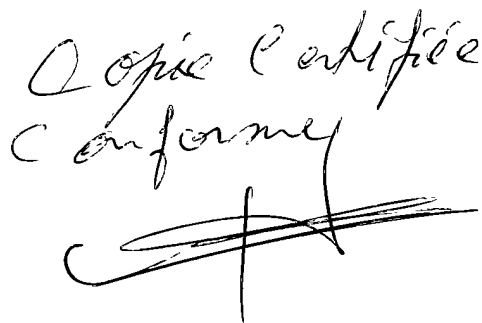 Copie Certifiée
Conforme